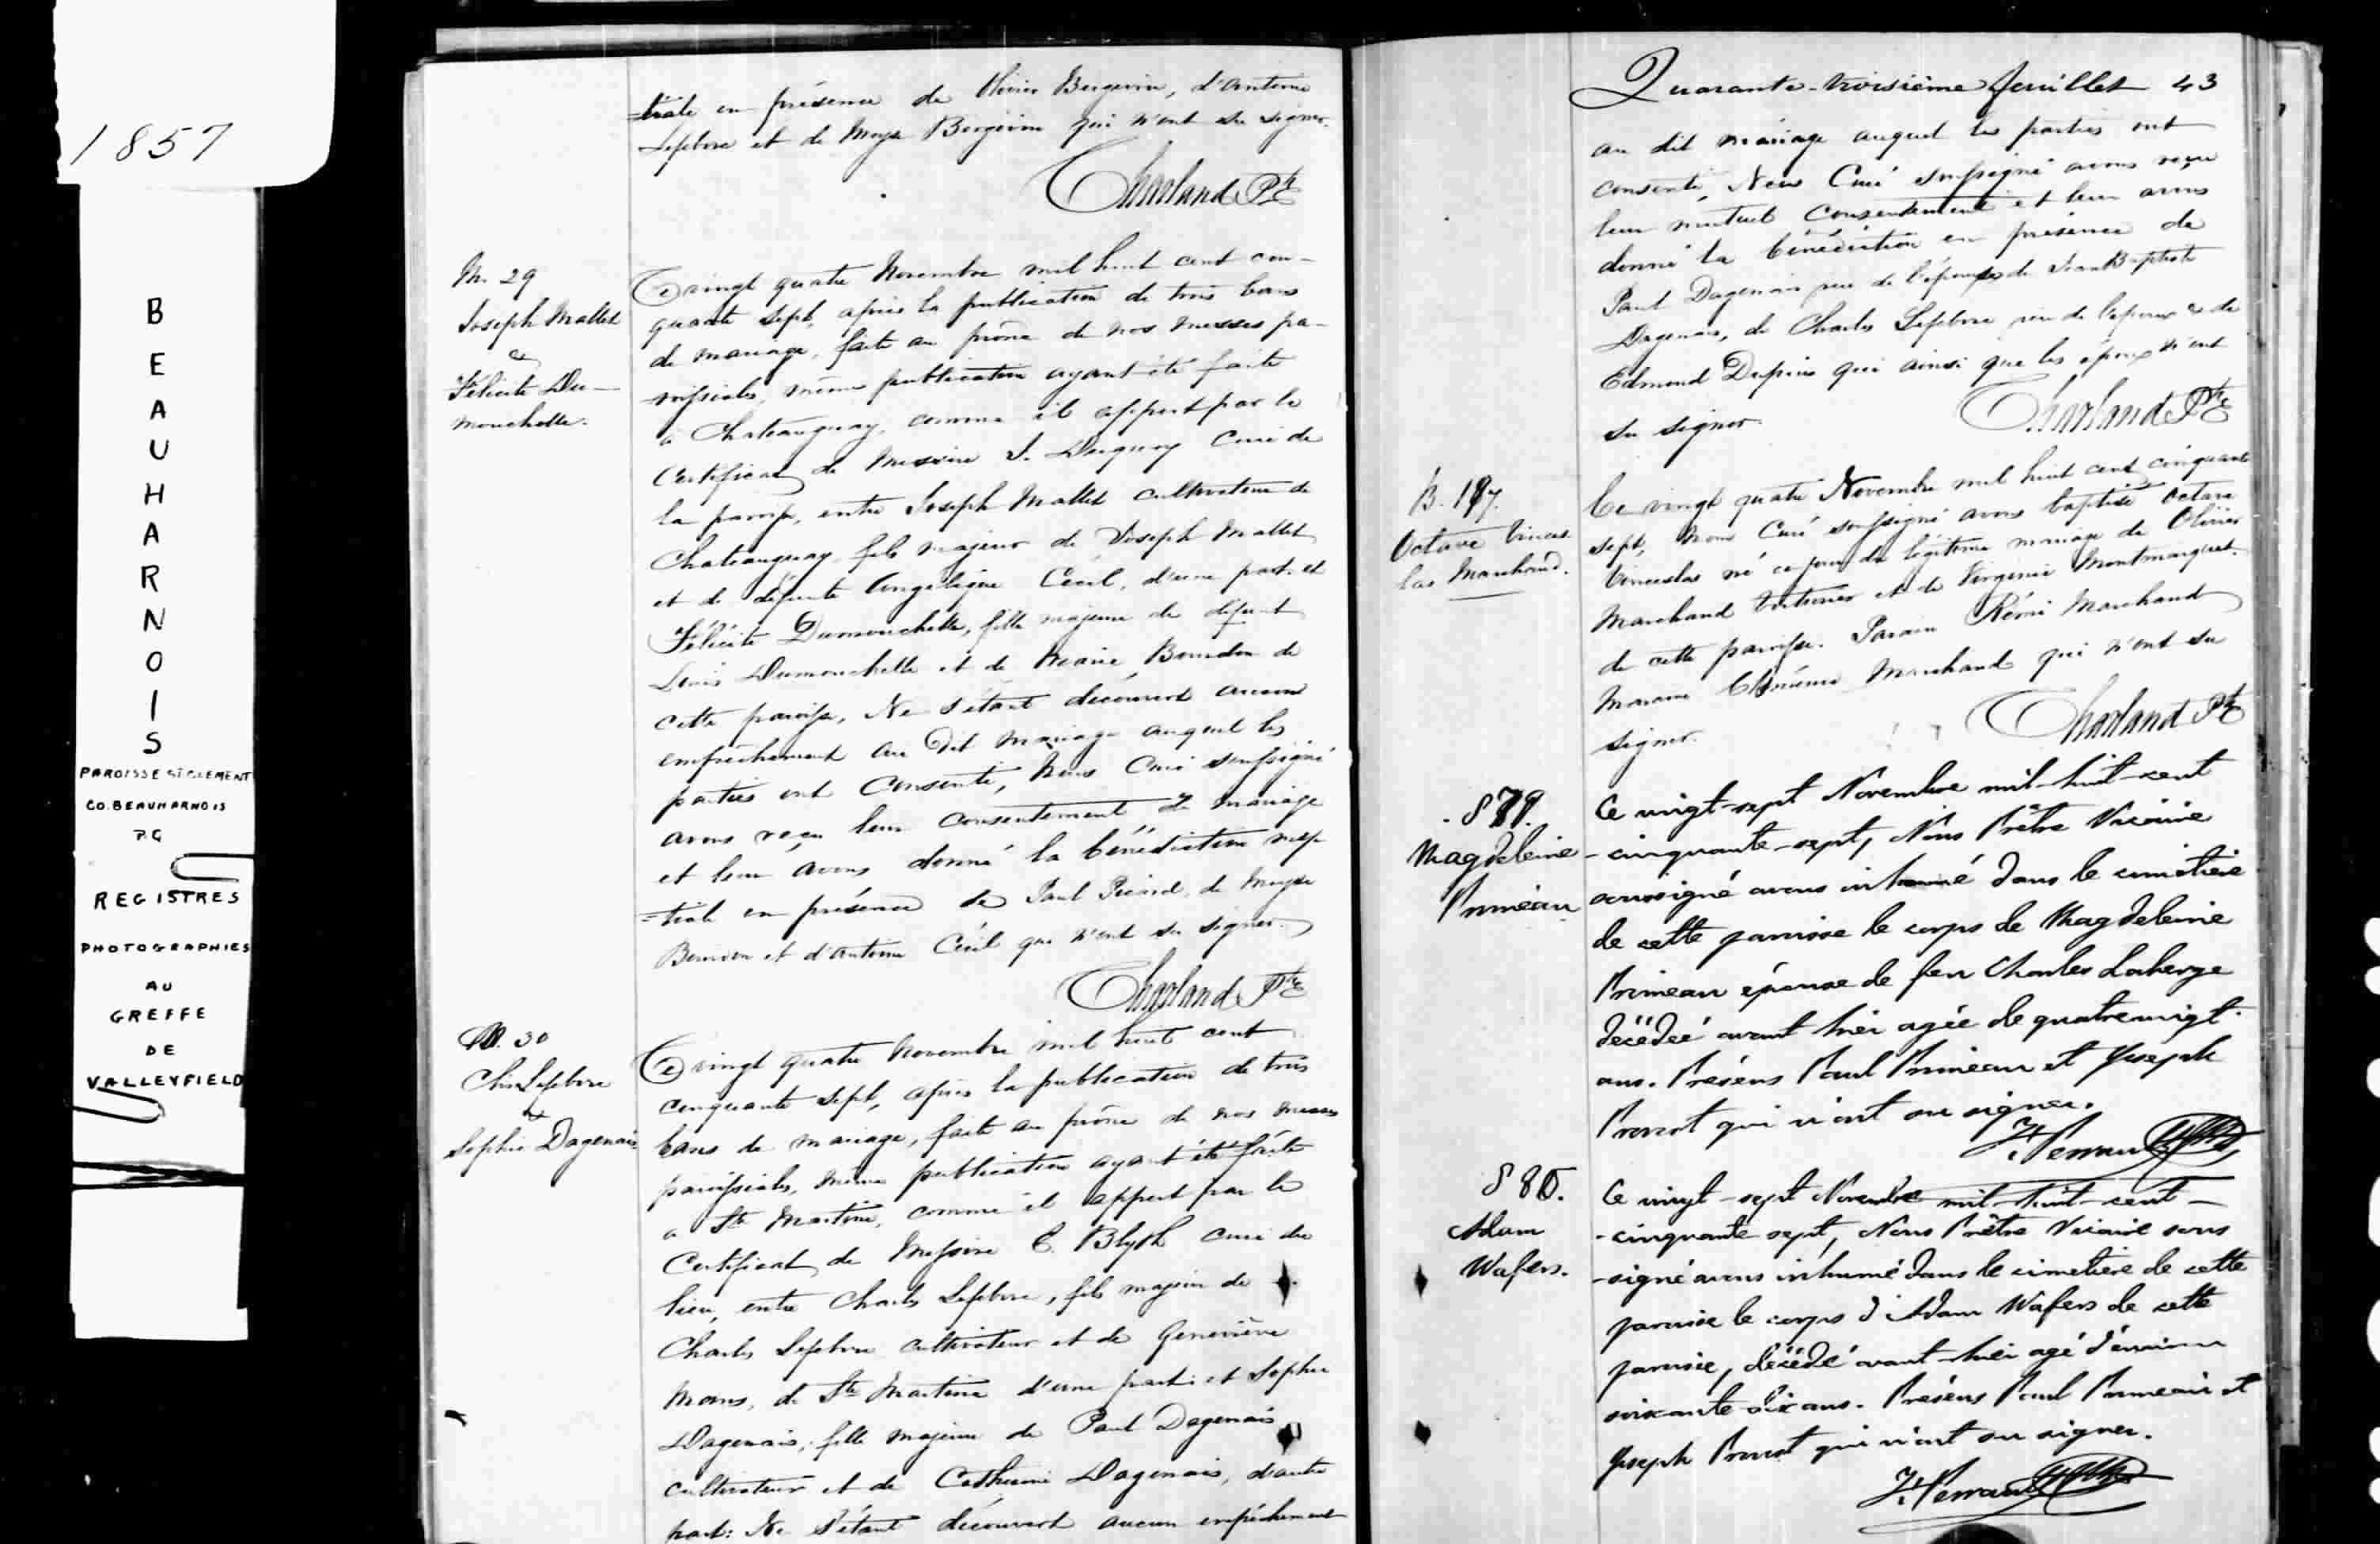 1857
BEAUHARNOIS
PAROISSE ST CLEMENT
CO. BEAUHARNOIS
P.Q
REGISTRES
PHOTOGRAPHIES
AU
GREFFE
DE
VALLEYFIELD
=tiale en présence de Olivier Bergevin, d'Antoine
Lefebvre et de Moyse Bergevin qui n'ont su signer.
Charland Ptre
M. 29
Joseph Mallet
&
Félicité Du-
mouchelle.
Ce vingt quatre Novembre mil huit cent cin-
quante sept, après la publication de trois bans
de mariage, faite au prône de nos messes pa-
roissiales, même publication ayant été faite
à Chateauguay, comme il appert par le
Certificat de Messire J. Duquoy Curé de
la paroisse, entre Joseph Mallet cultivateur de
Chateauguay fils majeur de Joseph Mallet
et de défunte Angelique Cécil, d'une part. et
Félicité Dumouchelle, fille majeure de défunt
Louis Dumouchelle et de Marie Bourdon de
cette paroisse, Ne s'étant découvert aucun
empêchement au dit mariage auquel les
parties ont consenti, Nous Curé soussigné
avons reçu leur consentement de mariage
et leur avons donné la bénédiction nup-
=tiale en présence de Paul Picard, de Moyse
et d'Antoine Cécil qui n'ont su signer.
Charland Ptre
M. 30
Chs Lefebvre
&
Sophie Dagenais
Ce vingt quatre Novembre mil huit cent
cinquante sept, après la publication de trois
bans de mariage, faite au prône de nos messes
paroissiales, même publication ayant été faite
a Ste Martine, comme il appert par le
Certificat de Messire E. Blyth curé du
lieu, entre Charles Lefebvre, fils majeur de
Charles Lefebvre cultivateur et de Geneviève
de Ste Martine d'une part: et Sophie
Dagenais, fille majeure de Paul Dagenais
cultivateur et de Catherine Dagenais, d'autre
part: Ne s'étant découvert aucun empêchement
Quarante-troisième feuillet 43
au dit mariage auquel les parties ont
consenti, Nous Curé soussigné avons reçu
leur mutuel consentement et leur avons
donné la bénédiction en présence de
Paul Dagenais père de l'épouse de Jean Baptiste
Dagenais, de Charles Lefebvre père de l'époux & de
Edmond Dupuis qui ainsi que les époux n'ont
su signer.
Charland Ptre
B. 187.
Octave Vinces-
las Marchand.
Ce vingt quatre Novembre mil huit cent cinquante
sept, Nous Curé soussigné avons baptisé Octave
Vinceslas né ce jour du légitime mariage de Olivier
Marchand Voiturier et de Virginie Montmarquet.
de cette paroisse. Parain Rémi Marchand
Maraine Marchand qui n'ont su
signer.
Charland Ptre
S 79.
Magdeleine
Primeau
Ce vingt-sept Novembre mil-huit-cent
-cinquante-sept, Nous Prêtre Vicaire
soussigné avons inhumé dans le cimetière
de cette paroisse le corps de Magdeleine
Primeau épouse de feu Charles Laberge
décédée avant hier agée de quatrevingt
ans. Présens Paul Primeau et Joseph
Provost qui n'ont su signer.
S 80.
Adam
Wafers.
Ce vingt-sept Novembre mil-huit-cent-
-cinquante sept, Nous Prêtre Vicaire sous
-signé avons inhumé dans le cimetière de cette
paroisse le corps d'Adam Wafers de cette
paroisse, décédé avant-hier agé d'environ
soixante dix ans. Présens Paul Primeau et
Joseph Provost qui n'ont su signer.